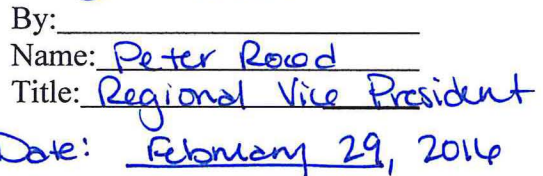 By:
Name: Peter
Title: Regional Vice President
Date: February 29, 2016